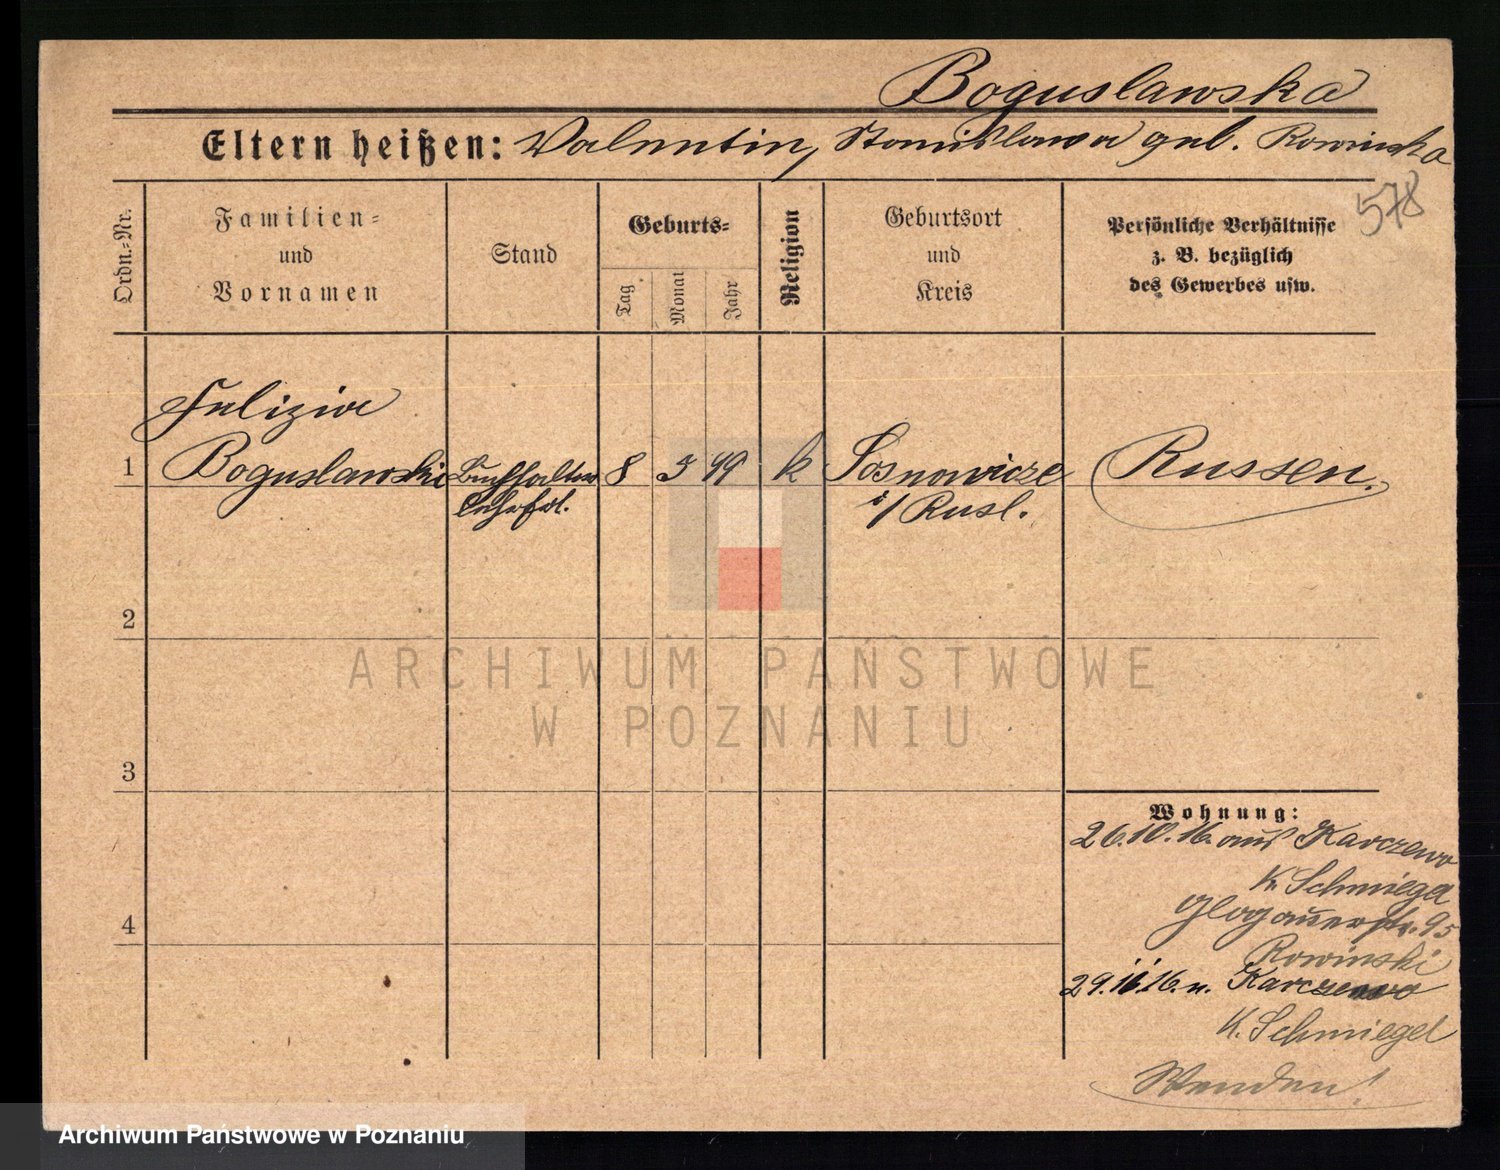 Boguslawska
Eltern heißen: Valentin, Stanislawa geb. Rowinska
578
Ordn.-Nr.
Familien-
und
Vornamen
Stand
Geburts-
Tag
Monat
Jahr
Religion
Geburtsort
und
Kreis
Persönliche Verhältnisse
z. B. bezüglich
des Gewerbes usw.
Felizia
1 Boguslawski Buchhalter 8 5 99 k Sosnowicze Russen.
Lehrfrl. i/ Rusl.
2
3
4
Wohnung:
26.10.16. aus Karczewo
K. Schmiegel
Glogauerstr. 95
Rowinski
29.11.16. n. Karczewo
K. Schmiegel
Wenden!
ARCHIWUM PAŃSTWOWE
W POZNANIU
Archiwum Państwowe w Poznaniu